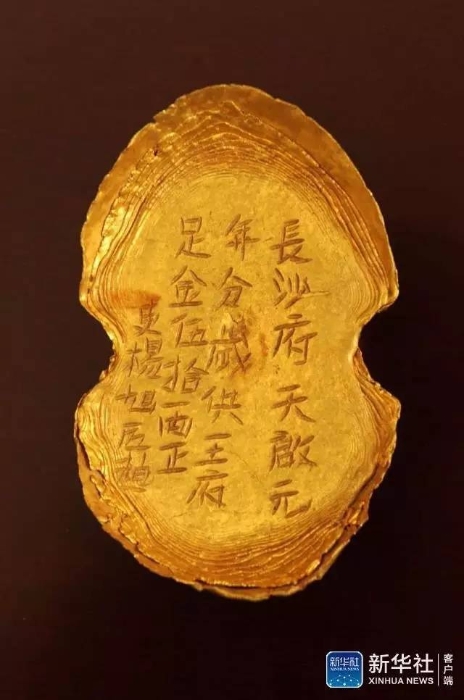 長沙府天啟元
年分歲供王府
足金伍拾兩正
吏楊旭匠趙
新华社
新华社
XINHUA NEWS
客户端